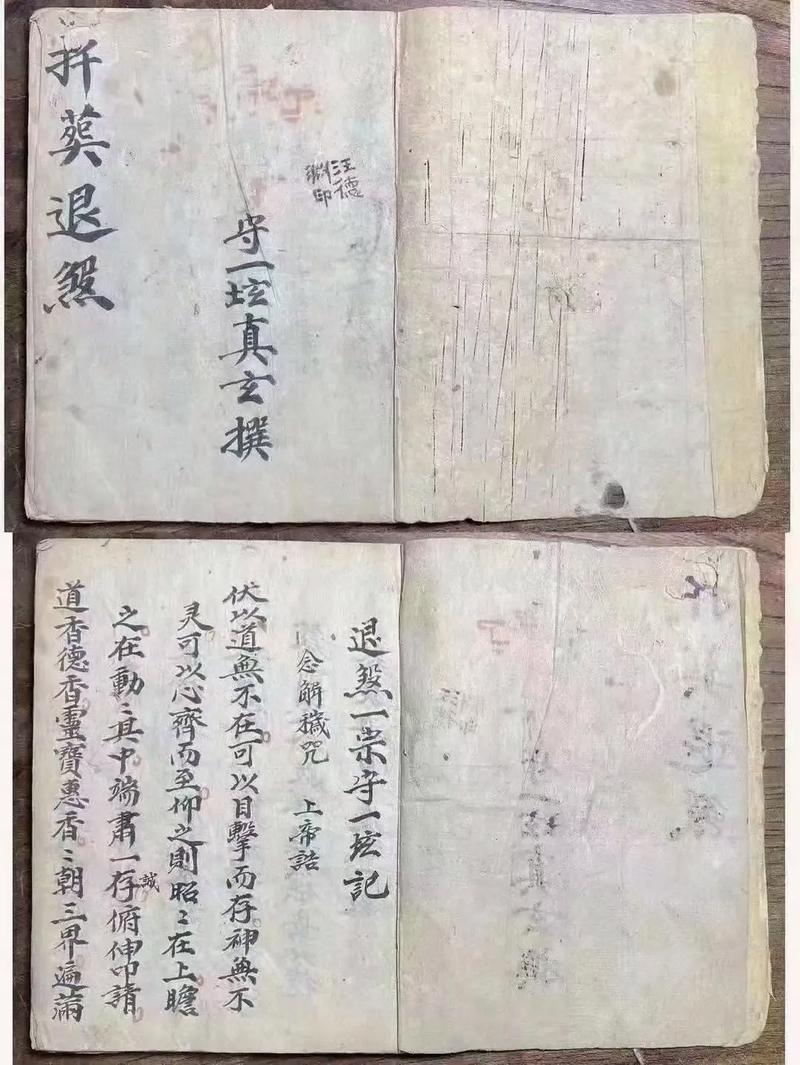 汪德
渊印
守一坛真玄撰
扦葬退煞
退煞一宗守一坛記
念解穢咒 上帝誥
伏以道無不在可以目擊而存神無不
灵可以心齊而至仰之則昭〻在上瞻
之在動〻其中端肅一存誠俯伸叩請
道香德香靈寶惠香〻朝三界遍滿